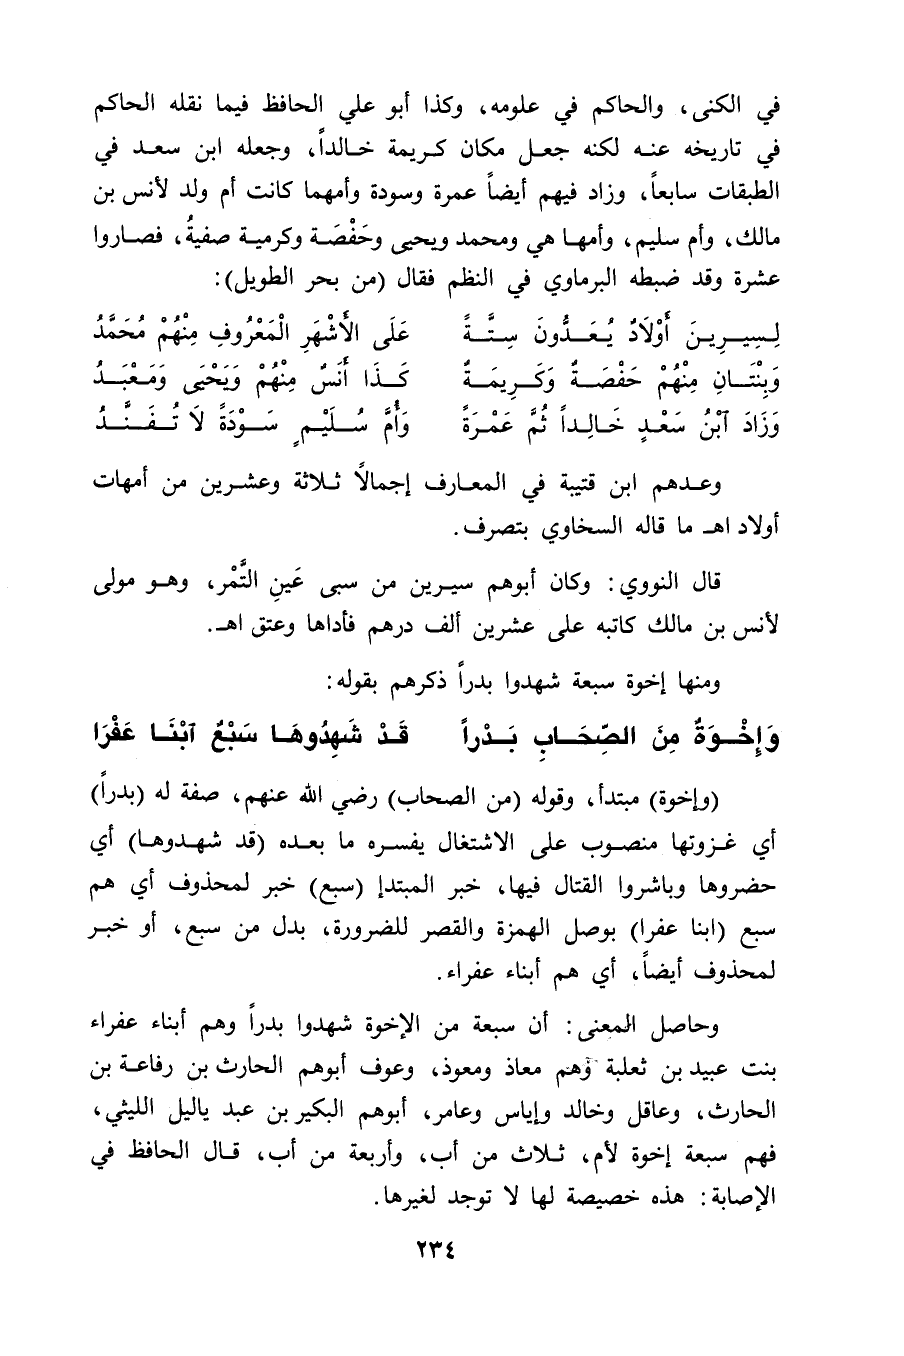 في الكنى، والحاكم في علومه، وكذا أبو علي الحافظ فيما نقله الحاكم
في تاريخه عنه لكنه جعل مكان كريمة خالداً، وجعله ابن سعد في
الطبقات سابعاً، وزاد فيهم أيضاً عمرة وسودة وأمهما كانت أم ولد لأنس بن
مالك، وأم سليم، وأمها هي ومحمد ويحيى وحَفْصَة وكرمية صفيةُ، فصاروا
عشرة وقد ضبطه البرماوي في النظم فقال (من بحر الطويل):
لِسِيرِينَ أَوْلَادٌ يُعَدُّونَ سِتَّةً عَلَى الأَشْهَرِ الْمَعْرُوفِ مِنْهُمْ مُحَمَّدُ
وَبِنْتَانِ مِنْهُمْ حَفْصَةٌ وَكَرِيمَةٌ كَذَا أَنَسٌ مِنْهُمْ وَيَحْيَى وَمَعْبَدُ
وَزَادَ آبْنُ سَعْدٍ خَالِداً ثُمَّ عَمْرَةً وَأُمَّ سُلَيْمٍ سَوْدَةً لَا تُفَنَّدُ
وعدهم ابن قتيبة في المعارف إجمالاً ثلاثة وعشرين من أمهات
أولاد اهـ ما قاله السخاوي بتصرف.
قال النووي: وكان أبوهم سيرين من سبى عَينِ التَّمْر، وهو مولى
لأنس بن مالك كاتبه على عشرين ألف درهم فأداها وعتق اهـ.
ومنها إخوة سبعة شهدوا بدراً ذكرهم بقوله:
وَإِخْوَةٌ مِنَ الصِّحَابِ بَدْراً قَدْ شَهِدُوهَا سَبْعٌ آبْنَا عَفْرَا
(وإخوة) مبتدأ، وقوله (من الصحاب) رضي الله عنهم، صفة له (بدراً)
أي غزوتها منصوب على الاشتغال يفسره ما بعده (قد شهدوها) أي
حضروها وباشروا القتال فيها، خبر المبتدإ (سبع) خبر لمحذوف أي هم
سبع (ابنا عفرا) بوصل الهمزة والقصر للضرورة، بدل من سبع، أو خبر
لمحذوف أيضاً، أي هم أبناء عفراء.
وحاصل المعنى: أن سبعة من الإخوة شهدوا بدراً وهم أبناء عفراء
بنت عبيد بن ثعلبة وهم معاذ ومعوذ، وعوف أبوهم الحارث بن رفاعة بن
الحارث، وعاقل وخالد وإياس وعامر، أبوهم البكير بن عبد ياليل الليثي،
فهم سبعة إخوة لأم، ثلاث من أب، وأربعة من أب، قال الحافظ في
الإصابة: هذه خصيصة لها لا توجد لغيرها.
٢٣٤